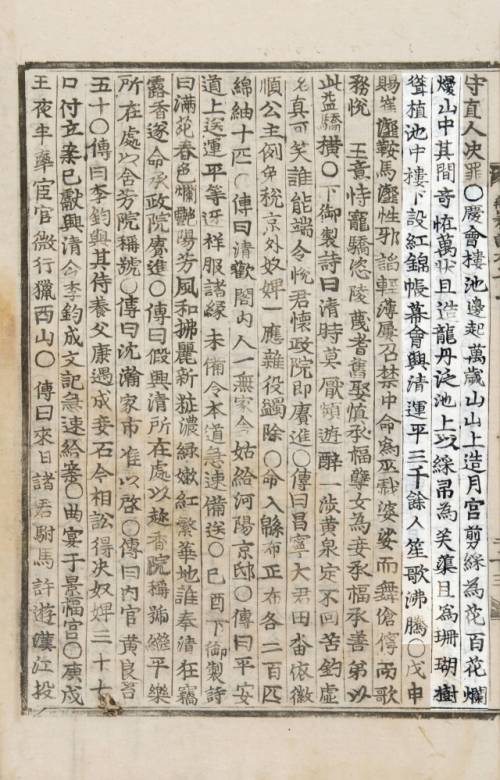 守直人決罪○慶會樓池邊起萬歲山山上造月宮剪綵爲花百花爛
熳山中其間奇恠萬狀且造龍舟泛池上以綵帛爲芙蕖且爲珊瑚樹
聳植池中樓下設紅錦帳幕會興淸運平三千餘人笙歌沸騰○戊申
賜崔灦鞍馬灦性邪諂輕薄屢召禁中命爲巫戱婆娑而舞傖儜而歌
務悅 王意恃寵驕悠陵蔑耆舊娶愼承福孽女爲妾承福承善弟以
此益驕橫○下御製詩曰淸時莫厭頻遊醉一涉黃泉定不回苦釣虛
名眞可笑誰能端合悅君懷政院卽賡進○傳曰昌寧大君田畓依徽
順公主例免稅京外奴婢一應雜役蠲除○命入緜布正布各二百匹
綿紬十匹○傳曰淸歡閣內人一無家令姑給河陽京邸○傳曰平安
道上送運平等迓祥服諸緣未備令本道急速備送○己酉下御製詩
曰滿苑春色爛艶陽芳風和拂麗新粧濃綠嫩紅繁華地誰奏淸狂竊
露香遂命承政院賡進○傳曰假興淸所在處以趁香院稱號繼平樂
所在處以含芳院稱號○傳曰沈瀚家市准以啓○傳曰內官黃良苔
五十○傳曰李鈞與其侍養父康遇成妾石今相訟得決奴婢三十七
口付立案已獻興淸令李鈞成文記急速給妾○曲宴于景福宮○庚戌
王夜率宦官微行獵西山○傳曰來日諸君駙馬許遊漢江投